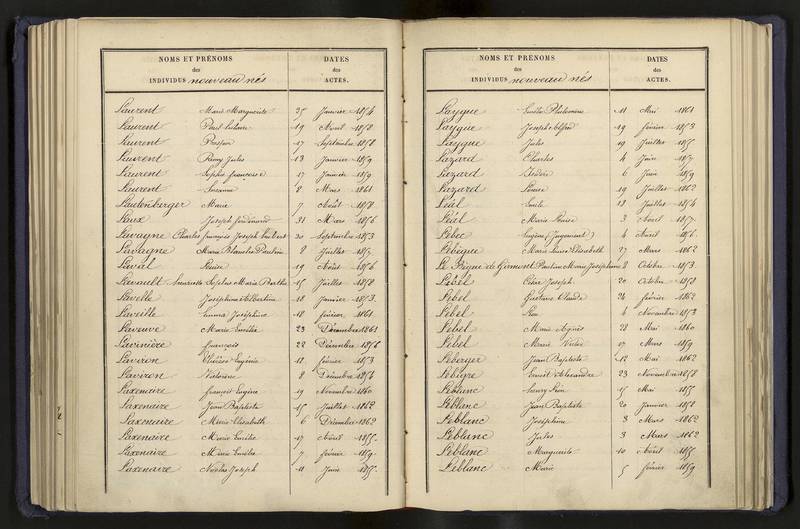 NOMS ET PRÉNOMS
des
INDIVIDUS nouveau nés
DATES
des
ACTES.
Laurent Marie Marguerite 25 Janvier 1854
Laurent Paul 19 Avril 1858
Laurent Prosper 17 Septembre 1858
Laurent Rémy Jules 13 Janvier 1859
Laurent Sophie françoise 17 Janvier 1859
Laurent Suzanne 8 Mars 1861
Lautenberger Marie 7 Août 1858
Laux Joseph ferdinand 31 Mars 1856
Lavagne Charles françois Joseph hubert 30 Septembre 1853
Lavagne Marie Blanche Pauline 8 Juillet 1857
Laval Louise 19 Août 1856
Lavault henriette Sophie Marie Berthe 15 Juillet 1858
Lavelle Joséphine Albertine 18 Janvier 1853
Laveille Emma Joséphine 18 février 1861
Laveuve Marie Emilie 23 Décembre 1861
Lavinière françois 22 Décembre 1856
Laviron Thérèse Eugénie 12 février 1853
Laviron Victorine 8 Décembre 1854
Laxenaire françois Eugène 19 Novembre 1860
Laxenaire Jean Baptiste 15 Juillet 1862
Laxenaire Marie Elisabeth 6 Décembre 1862
Laxenaire Marie Emilie 17 Avril 1855
Laxenaire Marie Emilie 7 février 1859
Laxenaire Nicolas Joseph 11 Juin 1855
NOMS ET PRÉNOMS
des
INDIVIDUS nouveau nés
DATES
des
ACTES.
Laygue Emilie Philomène 11 Mai 1861
Laygue Joseph Alfred 19 février 1853
Laygue Jules 19 Juillet 1855
Lazard Charles 4 Juin 1857
Lazard 6 Juin 1859
Lazard Louise 19 Juillet 1862
Léal Emile 18 Juillet 1854
Léal Marie Louise 3 Avril 1857
Lebec Eugène 4 Avril 1856
Lebègue Marie Louise Elisabeth 27 Mars 1862
Le Bègue de Girmont Pauline Marie Joséphine 8 Octobre 1853
Lebel César Joseph 20 Octobre 1858
Lebel Gustave Claude 24 février 1862
Lebel Léon 4 Novembre 1853
Lebel Marie Agnès 28 Mai 1860
Lebel Marie 17 Mars 1859
Leberger Jean Baptiste 12 Mai 1862
Lebègre Ernest Alexandre 23 Novembre 1858
Leblanc henry Léon 15 Mai 1855
Leblanc Jean Baptiste 20 Janvier 1858
Leblanc Joséphine 3 Mars 1862
Leblanc Jules 3 Mars 1862
Leblanc Marguerite 10 Avril 1855
Leblanc Marie 5 février 1859